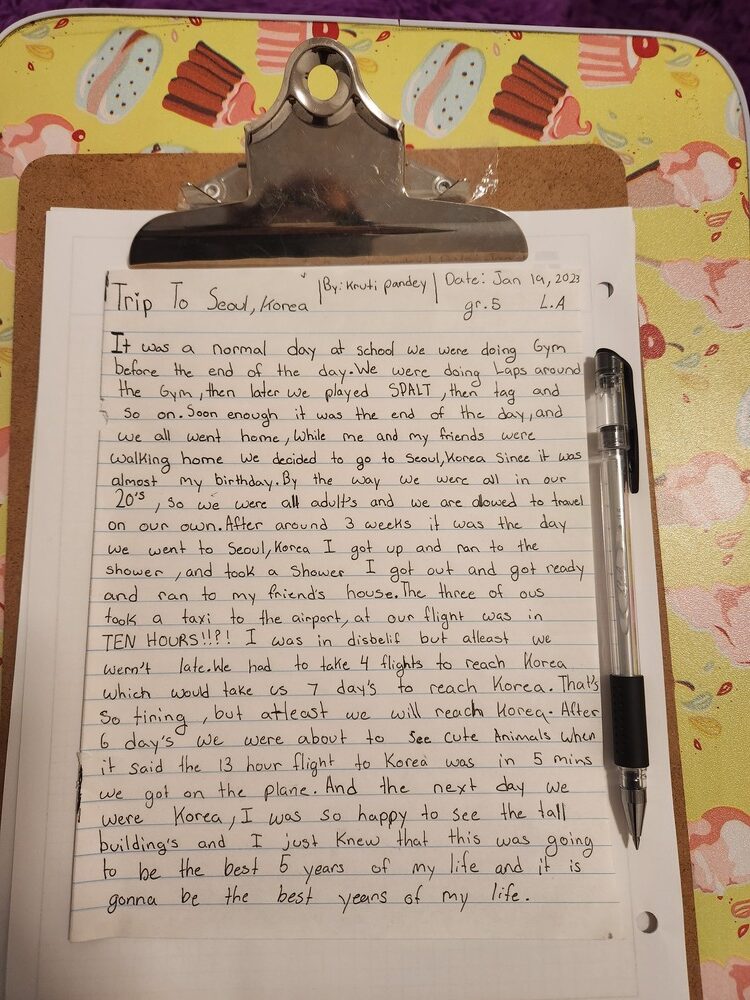 Trip To Seoul, Korea |By: Kruti Pandey| Date: Jan 19, 2023
gr.5 L.A
It was a normal day at school we were doing Gym
before the end of the day. We were doing Laps around
the Gym, then later we played SPALT, then tag and
so on. Soon enough it was the end of the day, and
we all went home, While me and my friends were
walking home we decided to go to Seoul, Korea since it was
almost my birthday. By the way we were all in our
20's, so we were all adult's and we are allowed to travel
on our own. After around 3 weeks it was the day
we went to Seoul, Korea I got up and ran to the
shower, and took a shower I got out and got ready
and ran to my friend's house. The three of ous
took a taxi to the airport, at our flight was in
TEN HOURS!!?! I was in disbelif but atleast we
wern't late. We had to take 4 flights to reach Korea
which would take us 7 day's to reach Korea. That's
so tiring, but atleast we will reach Korea. After
6 day's we were about to see cute Animals when
it said the 13 hour flight to Korea was in 5 mins
we got on the plane. And the next day we
were Korea, I was so happy to see the tall
building's and I just knew that this was going
to be the best 5 years of my life and it is
gonna be the best years of my life.